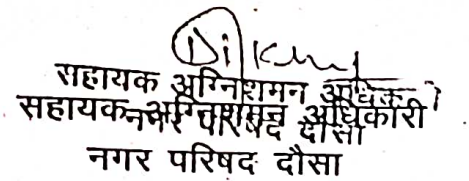 सहायक अग्निशमन अधिकारी
सहायक अग्निशमन अधिकारी
नगर परिषद दौसा
नगर परिषद दौसा